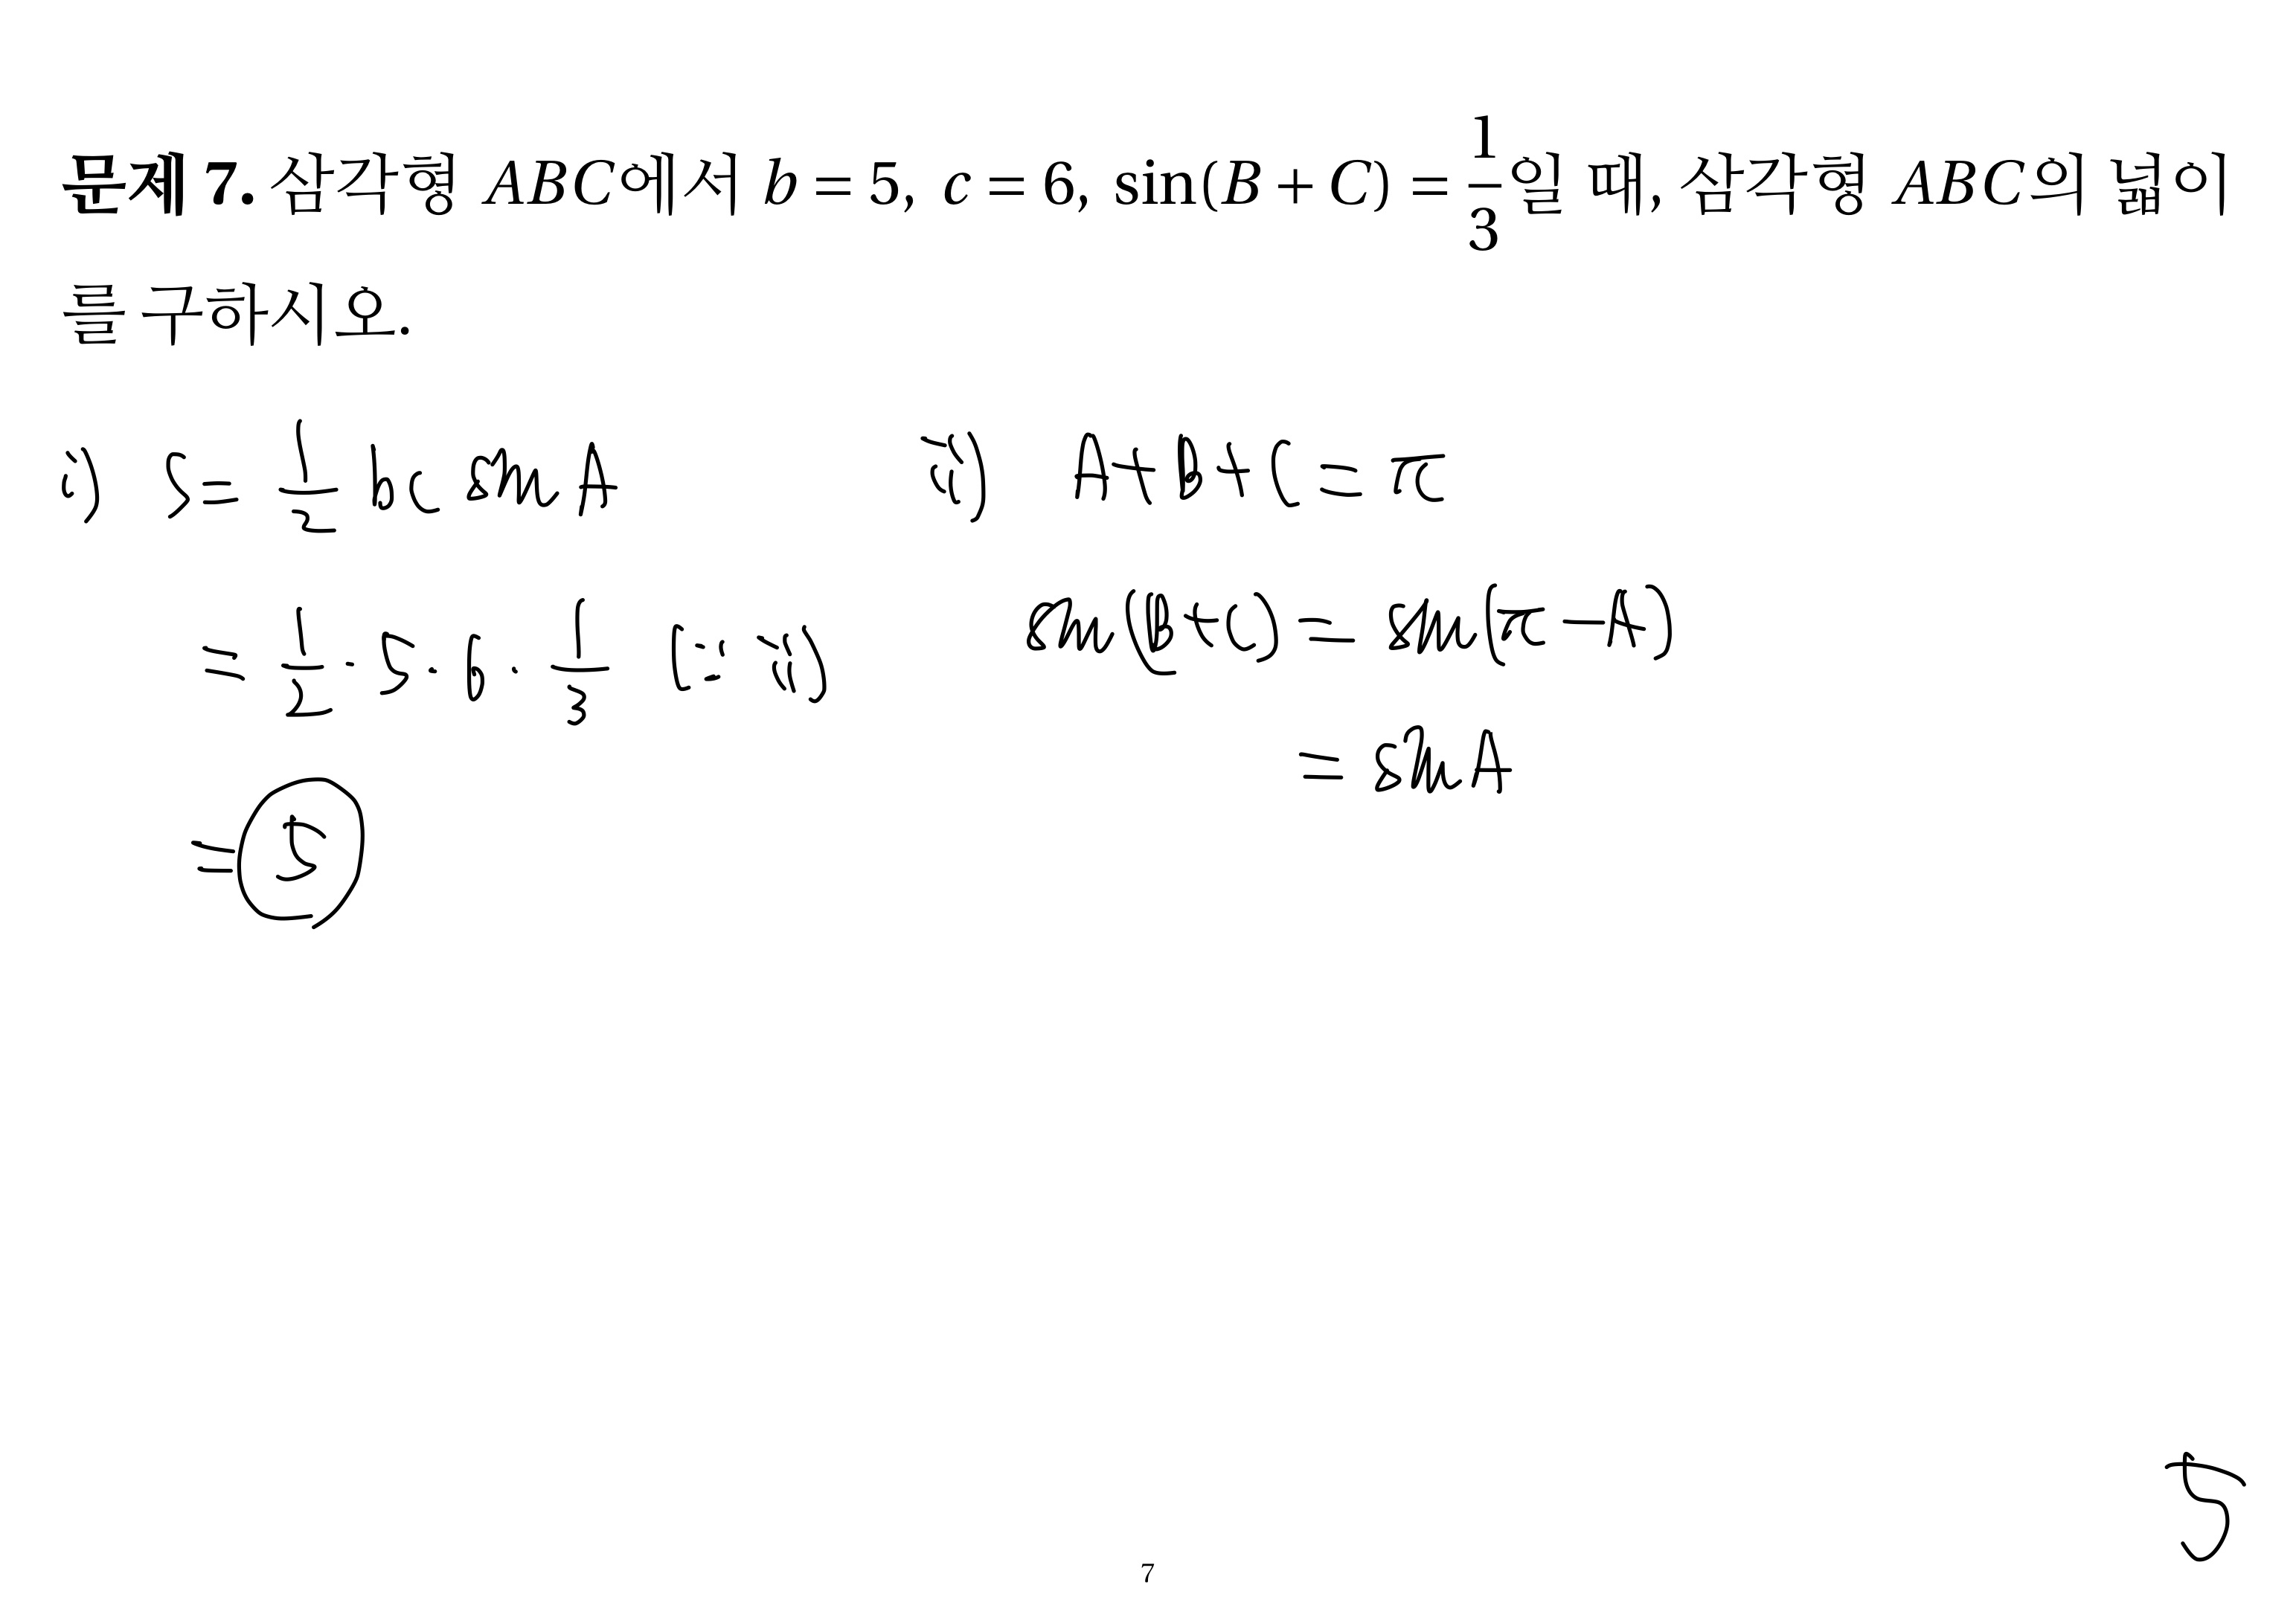 문제 7. 삼각형 ABC에서 b = 5, c = 6, sin(B + C) = 1/3일 때, 삼각형 ABC의 넓이
를 구하시오.
i) S = 1/2 bc sin A
= 1/2 · 5 · 6 · 1/3 (∵ ii)
= 5
ii) A+B+C = π
sin(B+C) = sin(π-A)
= sin A
5
7